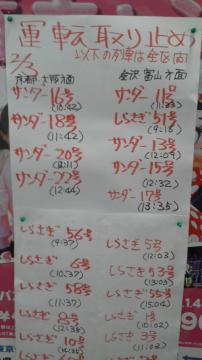 運転取り止め
以下の列車は全区間
2/3
京都・大阪方面
サンダー16号
(10:42)
サンダー18号
(11:42)
サンダー20号
サンダー22号
(12:44)
しらさぎ56号
(9:37)
しらさぎ6号
(10:37)
しらさぎ58号
(11:37)
しらさぎ8号
(12:38)
しらさぎ10号
金沢 富山方面
サンダー11号
(11:33)
しらさぎ51号
サンダー13号
(12:09)
サンダー15号
(12:32)
サンダー17号
(13:35)
しらさぎ5号
(12:03)
しらさぎ53号
(13:03)
しらさぎ55号
(15:04)